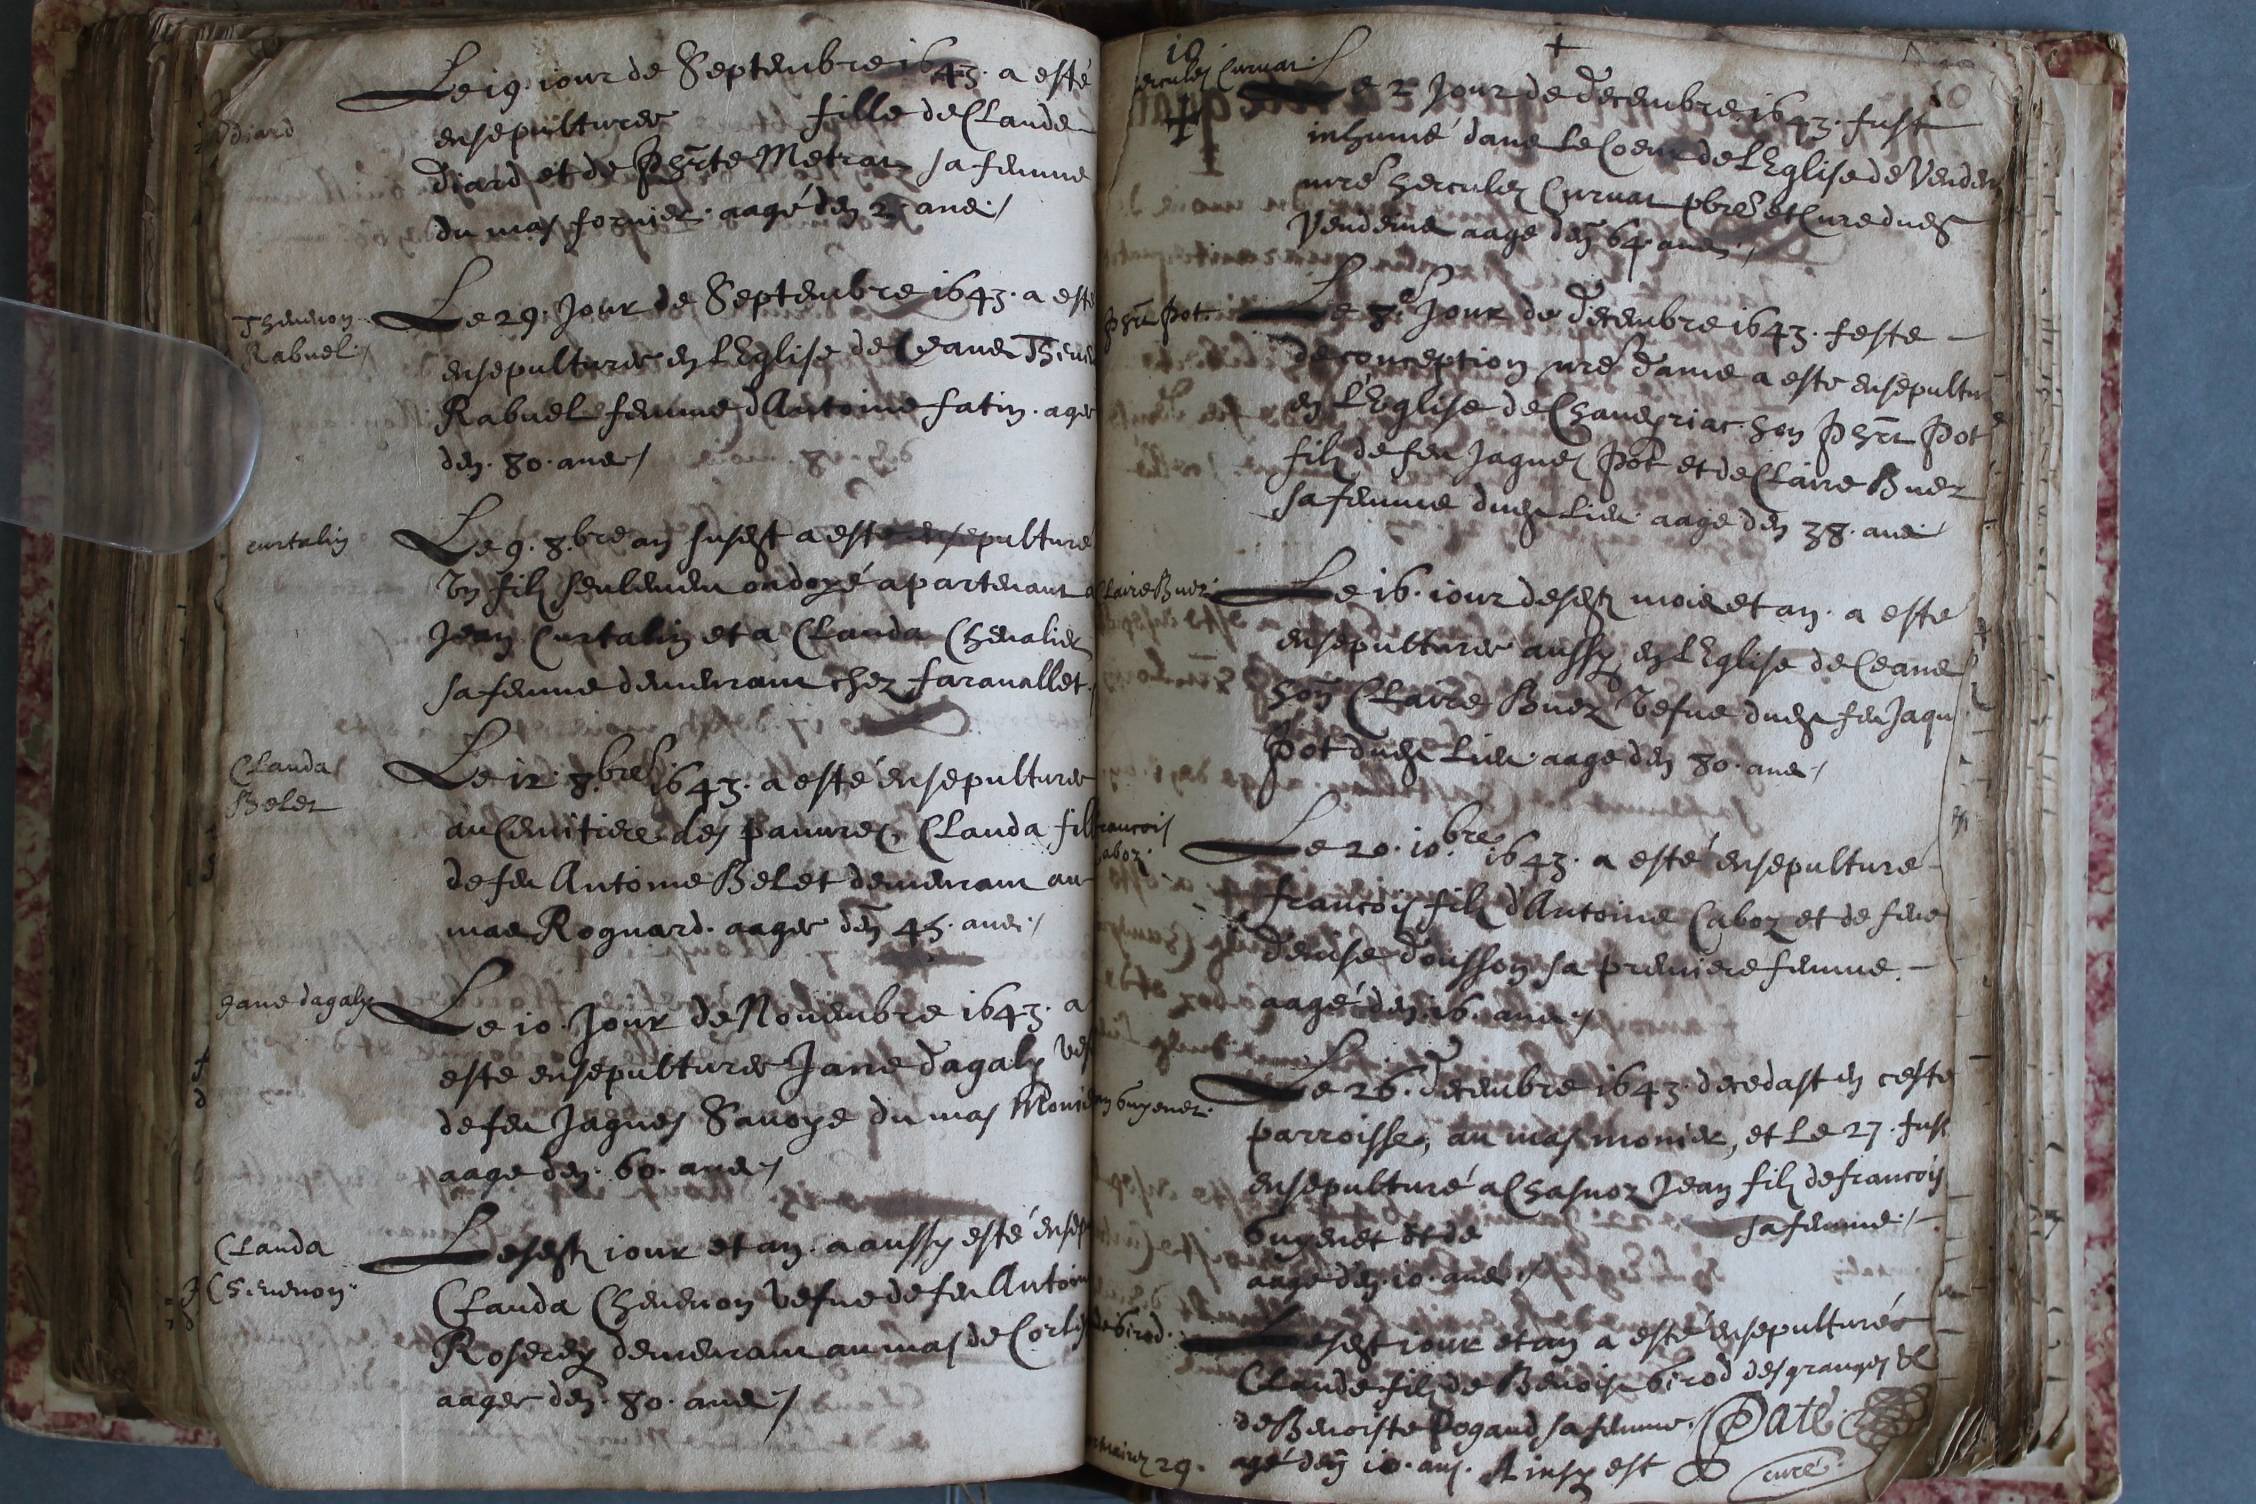 Diard
Le 19. iour de Septembre 1643. a esté
ensepulturee fille de Claude
Diard et de Phrte Metrat sa femme
du mas fornier. aagé den 2. ans./
Thevenon
Rabuel/
Le 29. Jour de Septembre 1643. a esté
ensepulturee en l'Eglise de Ceans
Rabuel femme d'Antoine fatin. agee
den. 80. ans/
curtalin
Le 9. 8.bre an susdt a esté ensepulturé
Un filz seulemen ondoyé apartenant a
Jean Curtalin et a Clauda Chevalier
sa femme demeurant chez faravallet./
Clauda
Belet
Le 12. 8.bre 1643. a esté ensepulturee
au Cemitiere des pauvres, Clauda fill
de feu Antoine Belet demeurant au
mas Rognard. aagee den 45. ans./
Jane dagalx
Le 10. Jour de Novembre 1643. a
este ensepulturee Jane dagalx
de feu Jaques Savoye du mas Monie
aage den. 60. ans/
Clauda
Chevenon.
Le sesdt iour et an. a aussy esté
Clauda Chevenon Vefve de feu Antoin
Roserey demeurant au mas de
aagee den. 80. ans/
10
hercules Curvat.
+
Le 2 Jour de decembre 1643. fust
inhumé dans le Coeur de l'Eglise de Vendein
mre hercules Curvat pbre et Cure dudt
Vendeins aage den 64. ans/
Phrt Pot
Le 8.e Jour de decembre 1643. feste
de conception nre dame a este ensepultur
en l'Eglise de Chaveyriac. hon Phrt Pot
filz de feu Jaques Pot et de Claire Buez
sa femme dudt lieu. aage den 38. ans
Claire Buez
Le 16. iour desdt mois et an. a esté
ensepulturee aussy en l'Eglise de Ceans
hon Claire Buez Vefve dudt feu Jaqu
Pot dudt lieu. aage den 80. ans/
francois
Caboz.
Le 20. 10.bre 1643. a esté ensepulturé
françois filz d'Antoine Caboz et de feue
denise dousson sa premiere femme.
aagé den. 16. ans/
Guyenet.
Le 26. decembre 1643. decedast en ceste
parroisse, au mas monier, et le 27. fust
ensepulturé a Jean filz de francois
Guyenet et de sa femme./
aage den. 10. ans/
Girod.
Le sesdt iour et an a esté ensepulturés
Claude filz de Benoist Girod des granges et
de Benoiste Pogand sa femme./ Paté
agé den 10. ans. Ainsy est
curé.
29.